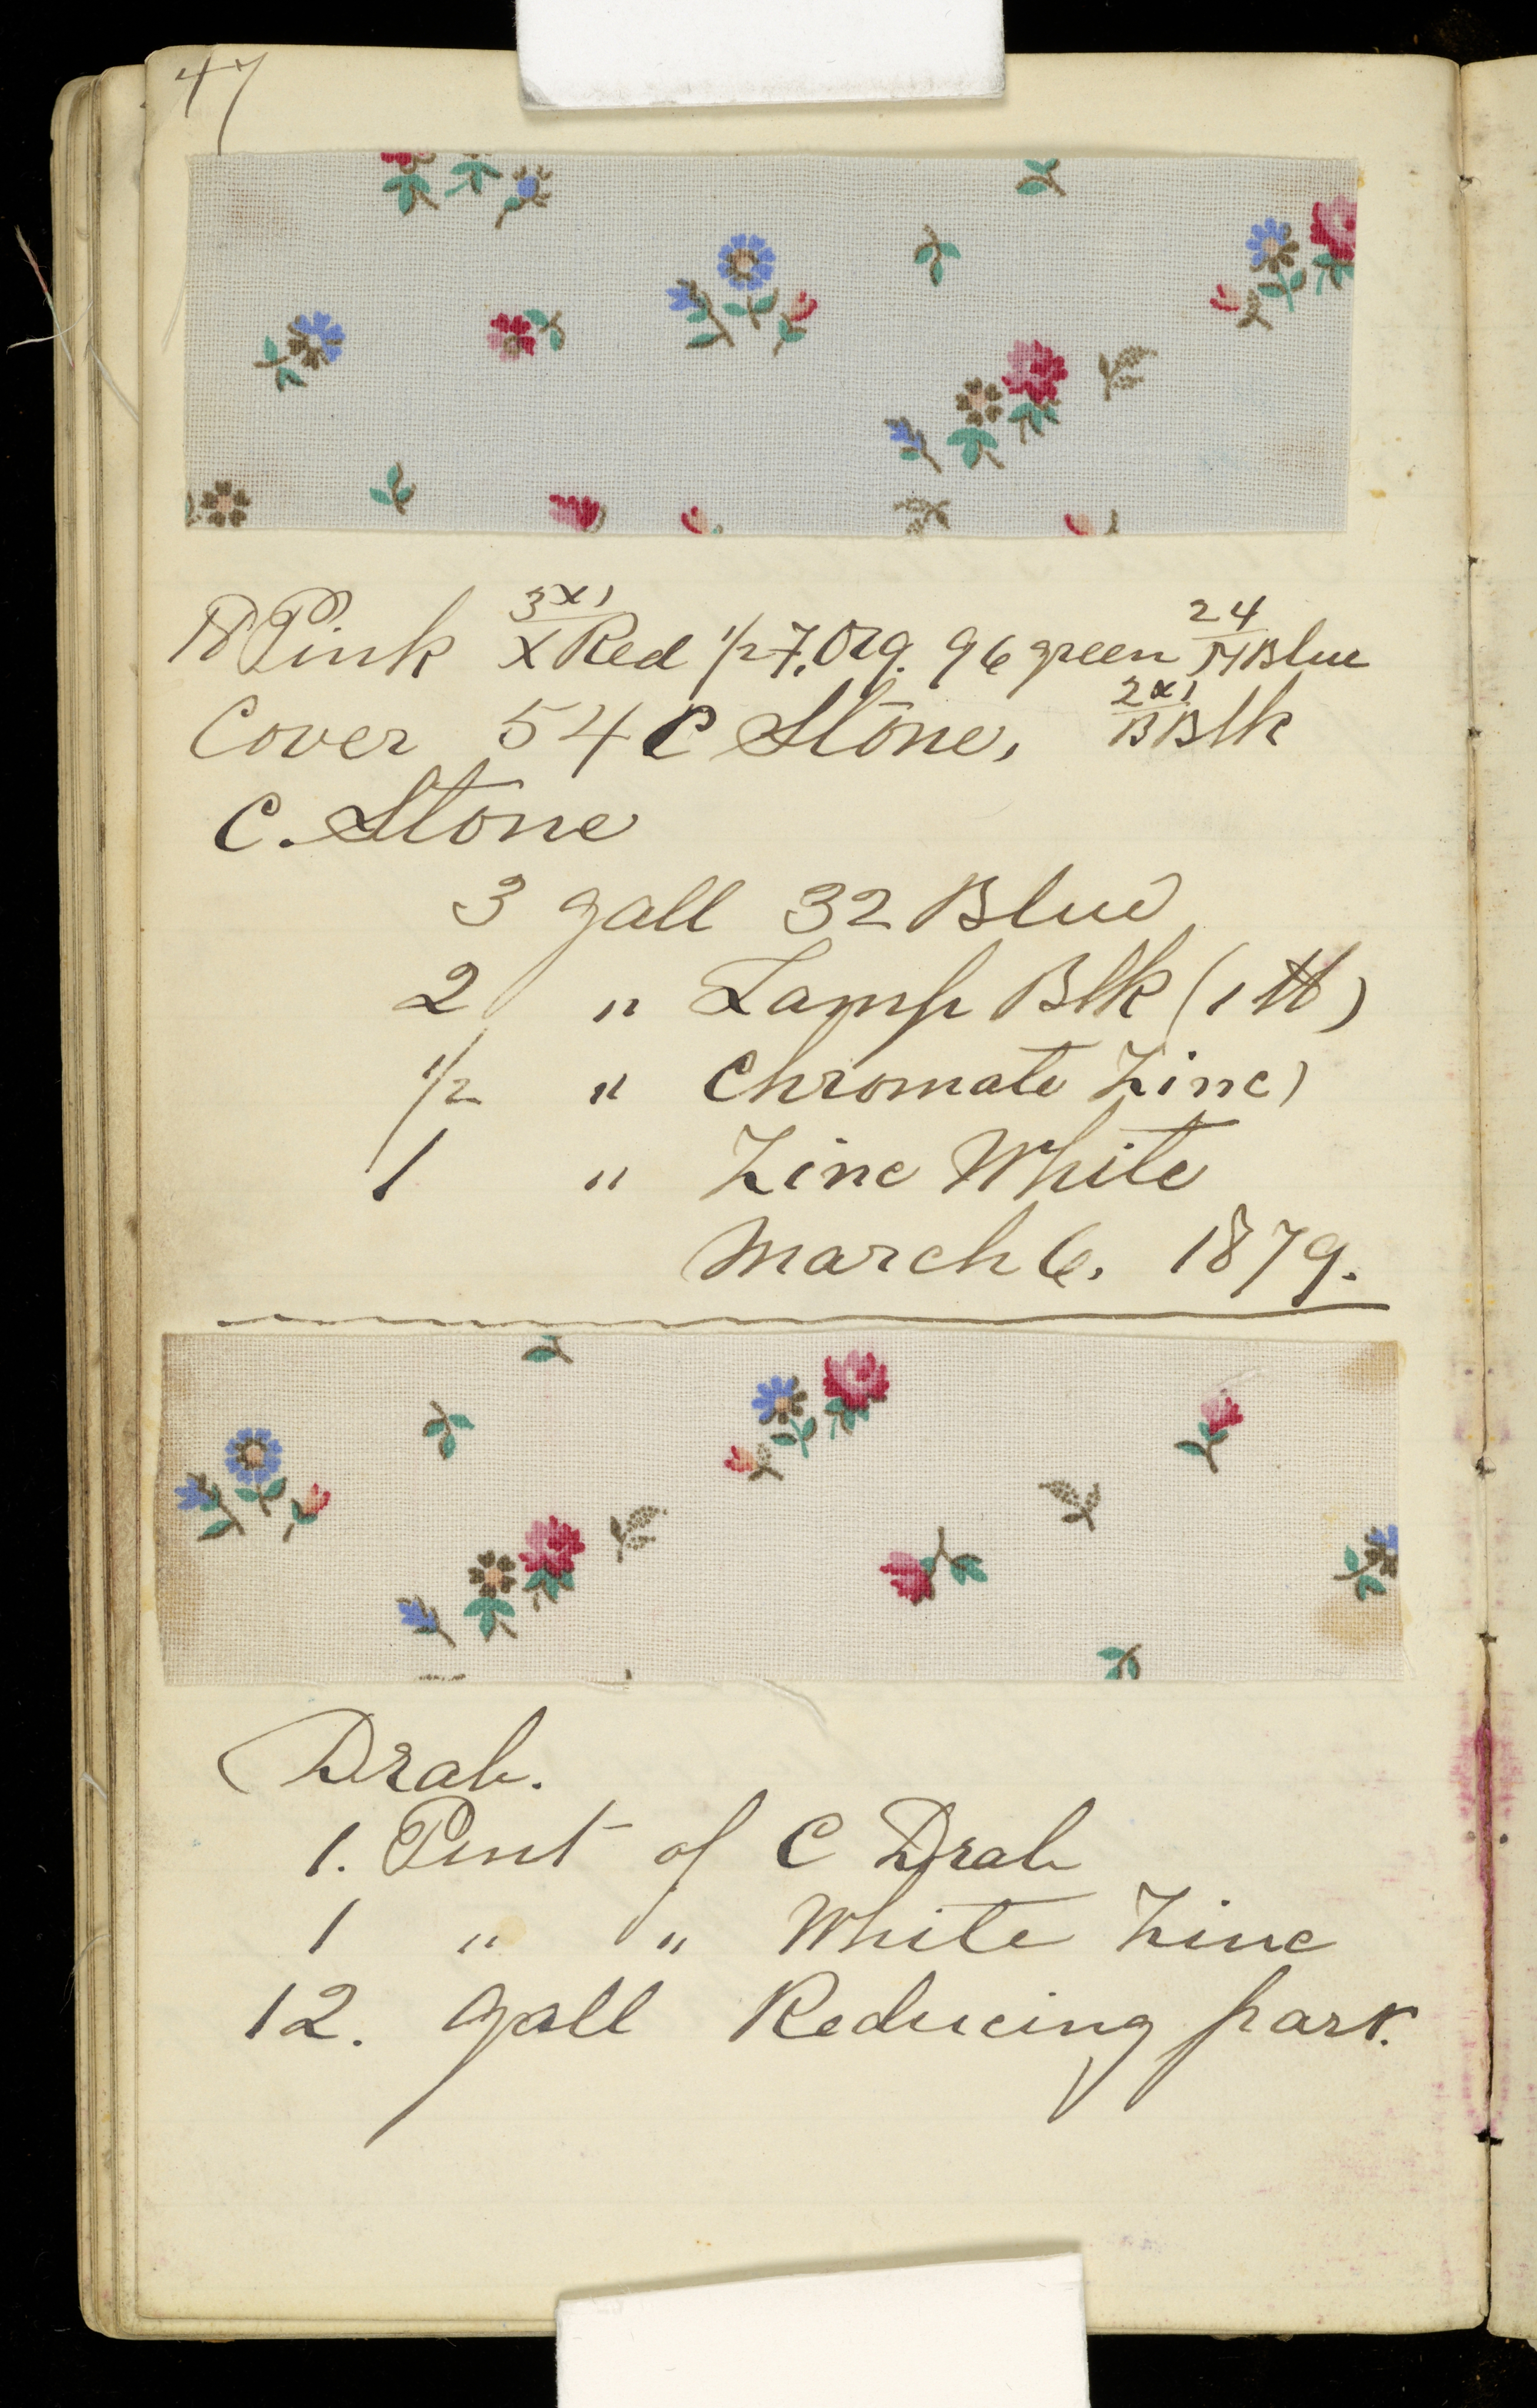 47
18 Pink 3x1/X Red 1/2 7. Org. 96 green 24/M Blue
Cover 54 C Stone, 2x1/B Blk
C. Stone
3 gall 32 Blue
2 " Lamp Blk (1 ℔)
1/2 " Chromate Zinc)
1 " Zinc White
March 6, 1879.
Drab.
1. Pint of C Drab
1 " " White Zinc
12. gall Reducing